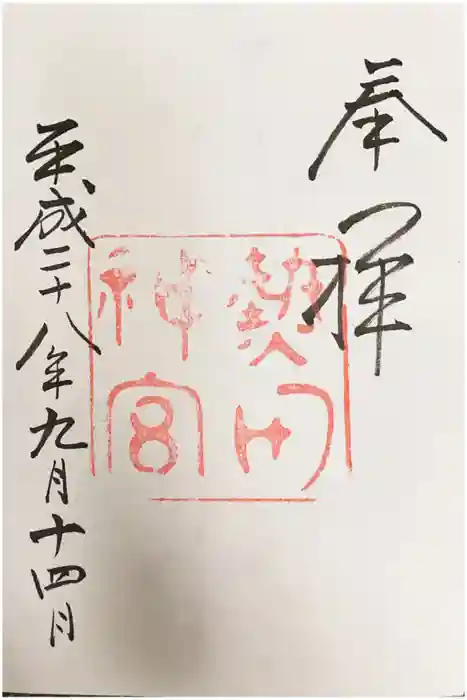 奉拝
熱田
神宮
平成二十八年九月十四日